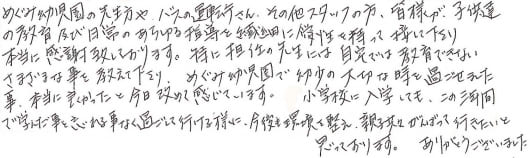 めぐみ幼児園の先生方や、バスの運転手さん、その他スタッフの方、皆様が、子供達
の教育及び日常のあらゆる指導を繊細に責任を持って導いて下さり
本当に感謝致しております。特に担任の先生には自宅では教育できない
さまざまな事を教えて下さり、めぐみ幼児園で幼少の大切な時を過ごせました
事、本当に良かったと今日改めて感じています。 小学校に入学しても、この三年間
で学んだ事を忘れる事なく過ごして行ける様に、今後も環境を整え、親子共々がんばって行きたいと
思っております。 ありがとうございました